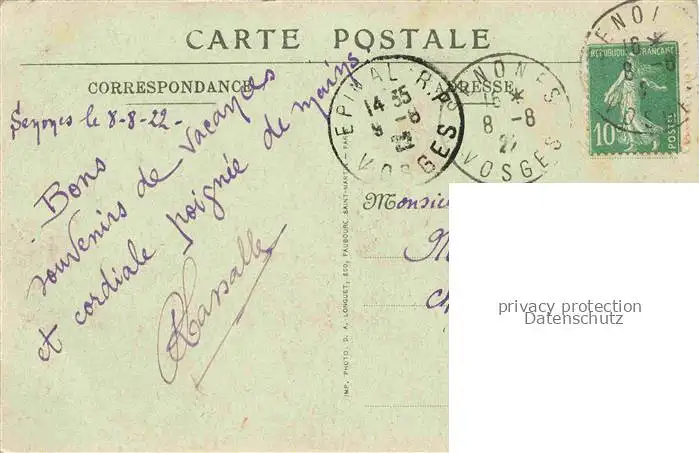 CARTE POSTALE
CORRESPONDANCE
ADRESSE
Senones le 8-8-22-
Bons
souvenirs de vacances
et cordiale poignée de mains.
EPINAL R.P.
14 35
9 -8
22
VOSGES
SENONES
16 *
8 -8
22
VOSGES
RÉPUBLIQUE FRANÇAISE
10
POSTES
IMP. PHOTO. D. A. LONGUET, 250, FAUBOURG SAINT-MARTIN - PARIS
Monsieur
privacy protection
Datenschutz